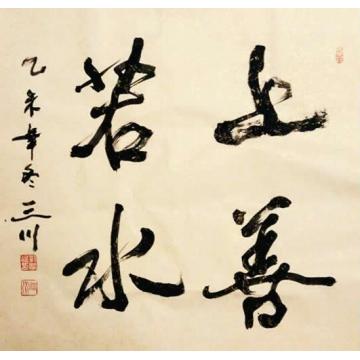 上善
若水
乙未年冬三川